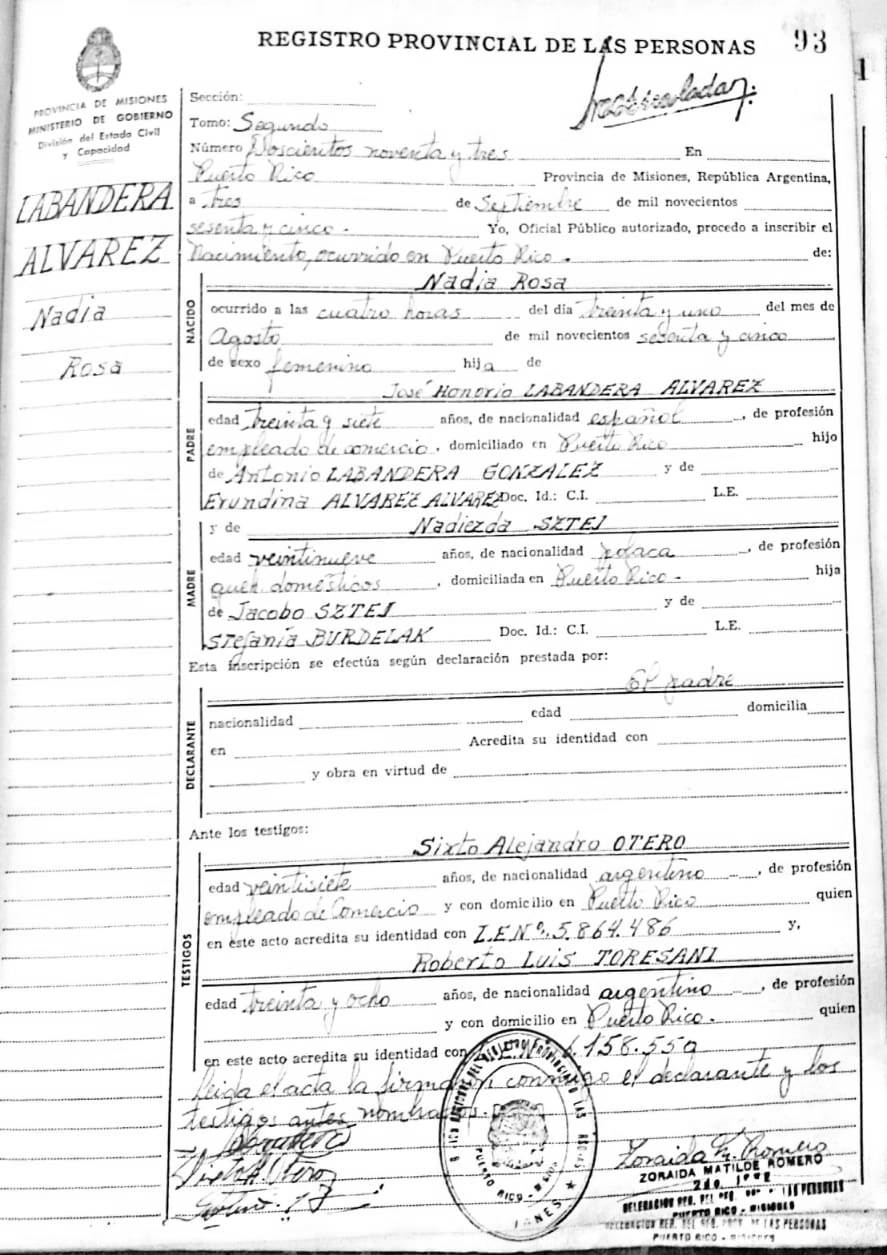 REGISTRO PROVINCIAL DE LAS PERSONAS 93
1
PROVINCIA DE MISIONES
MINISTERIO DE GOBIERNO
División del Estado Civil
y Capacidad
LABANDERA
ALVAREZ
Nadia
Rosa
Sección:
Tomo: Segundo
Número Doscientos noventa y tres En
Puerto Rico Provincia de Misiones, República Argentina,
a tres de Septiembre de mil novecientos
sesenta y cinco. Yo, Oficial Público autorizado, procedo a inscribir el
Nacimiento, ocurrido en Puerto Rico. de:
NACIDO
Nadia Rosa
ocurrido a las cuatro horas del día treinta y uno del mes de
Agosto de mil novecientos sesenta y cinco
de sexo femenino hija de
PADRE
José Honorio LABANDERA ALVAREZ
edad treinta y siete años, de nacionalidad español, de profesión
empleado de comercio, domiciliado en Puerto Rico hijo
de Antonio LABANDERA GONZALEZ y de
Erundina ALVAREZ ALVAREZ Doc. Id.: C.I. L.E.
MADRE
y de Nadiezda SZTEJ
edad veintinueve años, de nacionalidad polaca, de profesión
queh. domésticos, domiciliada en Puerto Rico. hija
de Jacobo SZTEJ y de
Stefania BURDELAK Doc. Id.: C.I. L.E.
Esta inscripción se efectúa según declaración prestada por:
El padre
DECLARANTE
nacionalidad edad domicilia
en Acredita su identidad con
y obra en virtud de
Ante los testigos:
TESTIGOS
Sixto Alejandro OTERO
edad veintisiete años, de nacionalidad argentino, de profesión
empleado de Comercio y con domicilio en Puerto Rico quien
en este acto acredita su identidad con L.E.Nº.5.864.486 y,
Roberto Luis TORESANI
edad treinta y ocho años, de nacionalidad argentino, de profesión
y con domicilio en Puerto Rico. quien
en este acto acredita su identidad con 158.550
leida el acta la firman con conmigo el declarante y los
testigos antes nombrados.
Zoraida M. Romero
ZORAIDA MATILDE ROMERO
PUERTO RICO - MISIONES
PUERTO RICO - MISIONES